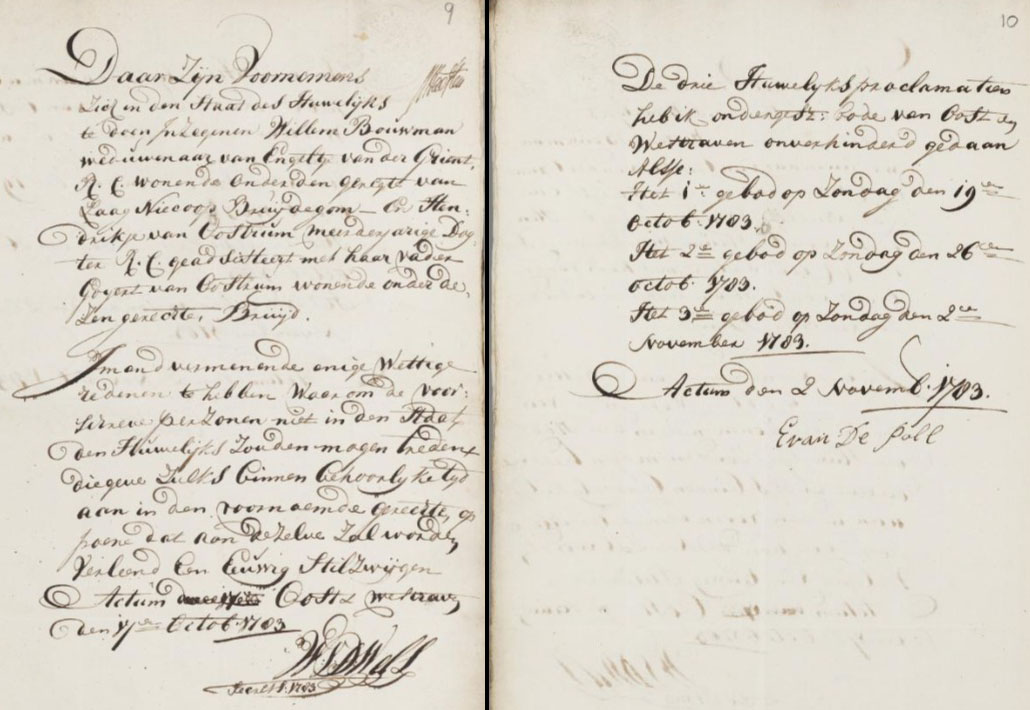 9
Daar Zijn Voornemens
Zich in den Staat des Huwelijks
te doen Inzegenen Willem Bouwman
weduwenaar van Engeltje van der Grient,
R. C. wonende onder den geregte van
Laag Niecoop Bruijdegom — En Hen:
drikje van Oostrum meerderjarige Dog
ter R. C. geadsisteert met haar vader
Goyert van Oostrum wonende onder de
Zen gerechte, Bruijd.
Imand vermenende enige Wettige
redenen te hebben Waarom de voor:
schreve perzonen niet in den Staat
den Huwelijks Zouden mogen treden
die geve Zulks binnen behoorlyke tyd
aan in den voornoemde gerechte, op
poene dat aan dezelve Zal worden
Verleend Een Eeuwig Stilzwijgen
Actum Oost & Westraven
den 17en Octob. 1783
W V D Wall
Secrets. 1783
10
De drie Huwelyks proclamatien
heb ik ondergesz: bode van Oost en
Westraven onverhinderd gedaan
Alsse:
Het 1te gebod op Zondag den 19en
Octob. 1783.
Het 2de gebod op Zondag den 26en
octob. 1783.
Het 3de gebod op Zondag den 2en
November 1783.
Actum den 2 Novemb. 1783.
E van De Poll